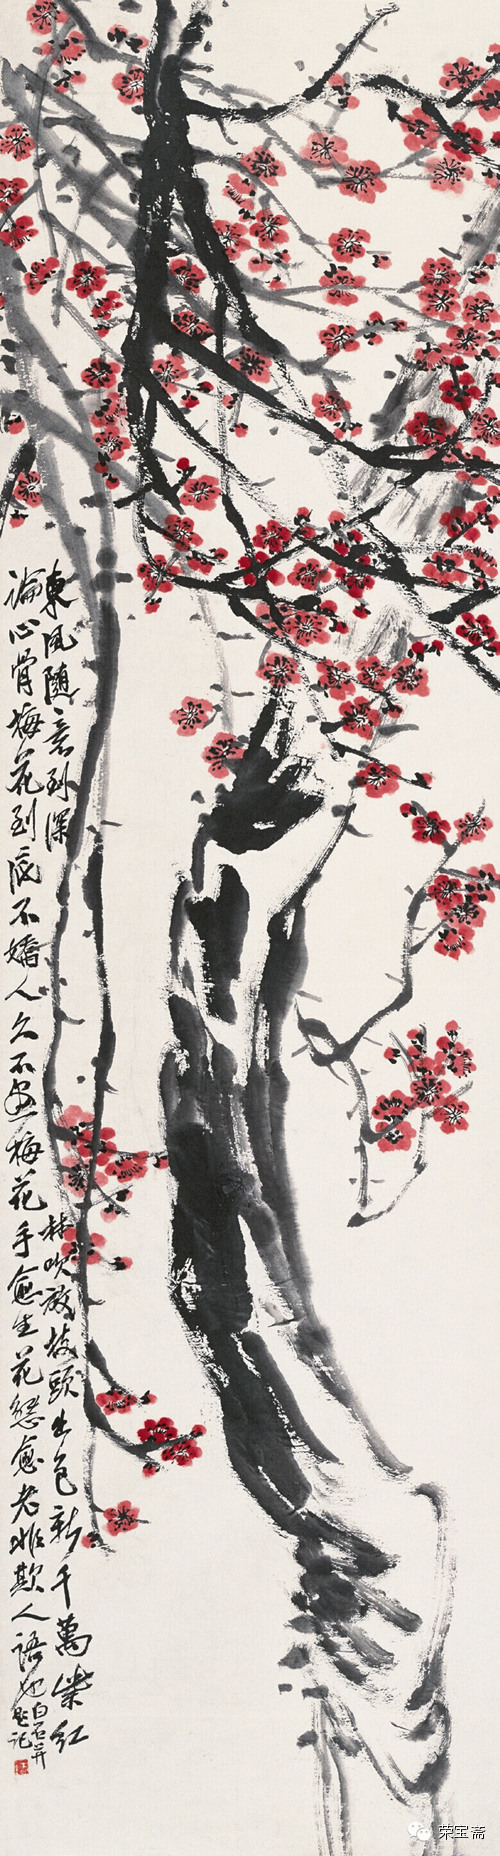 東風随意到深
林吹放枝頭出色新千萬紫紅
論心骨梅花到底不嬌人久不畫梅花手愈生花態愈老非欺人語也
白石并
題記
荣宝斋